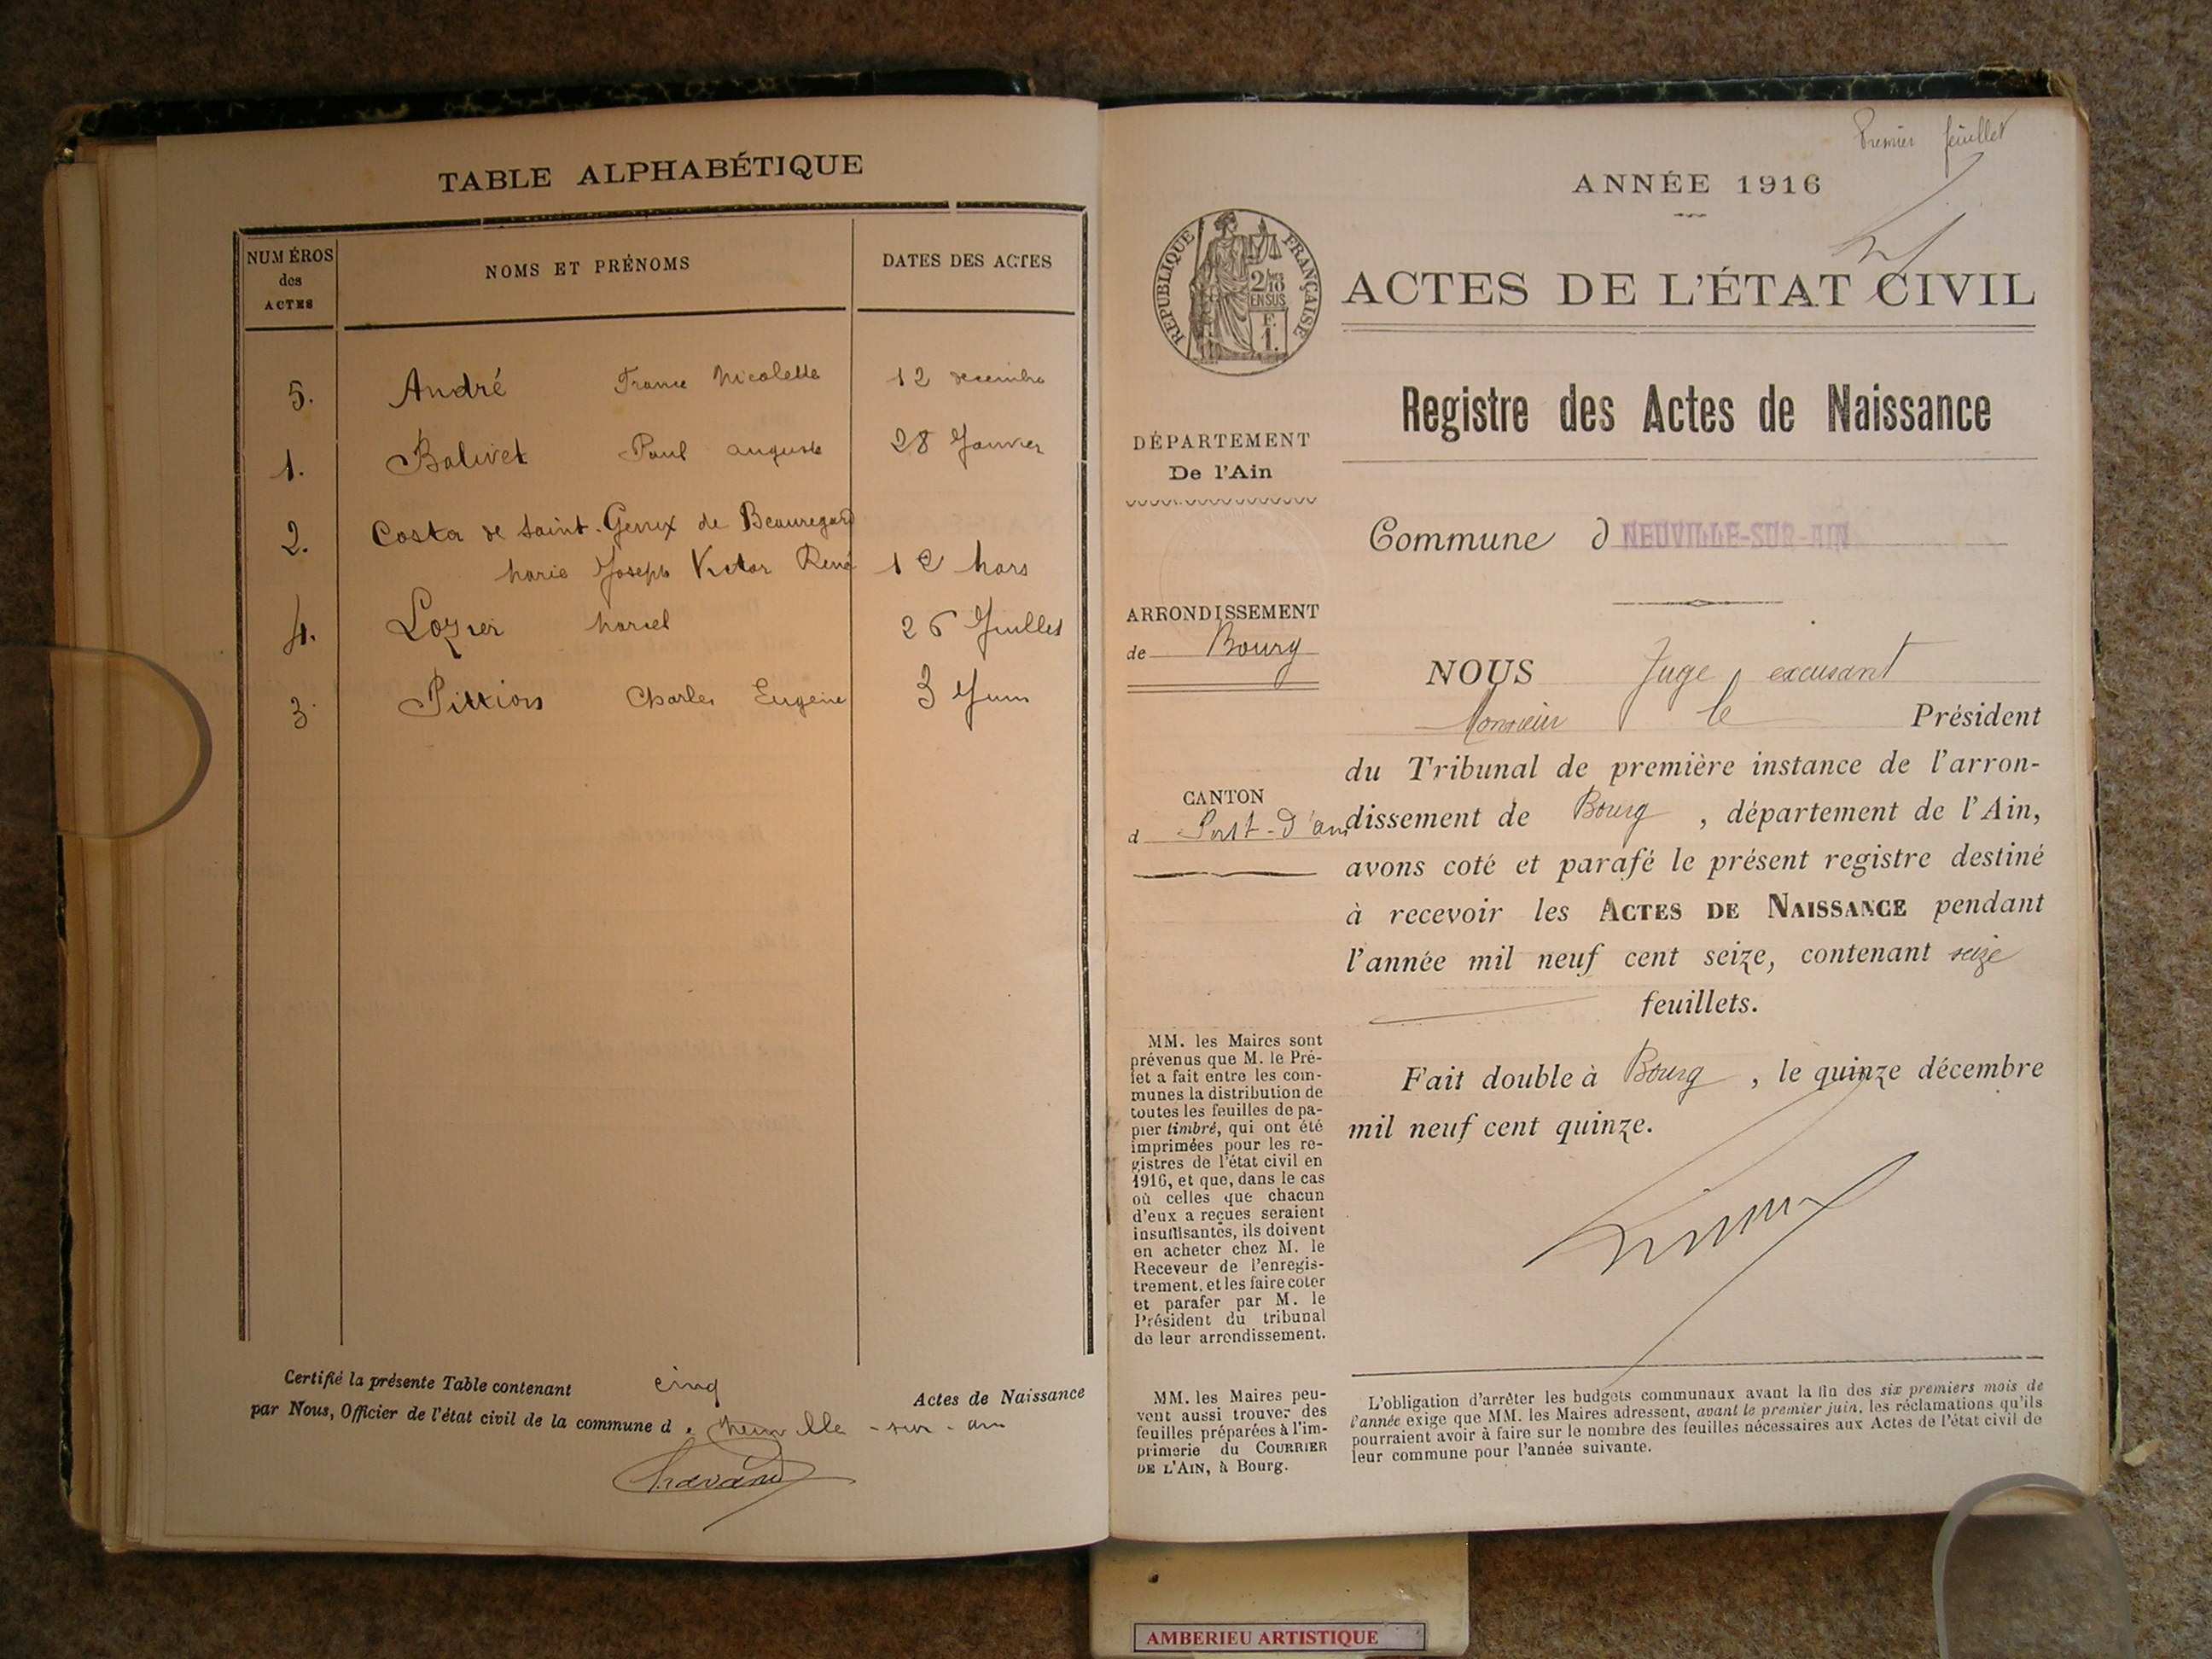 TABLE ALPHABÉTIQUE
NUMÉROS
des
ACTES
NOMS ET PRÉNOMS
DATES DES ACTES
5. André France Nicolette 12 decembre
1. Balivet Paul auguste 28 Janvier
2. Costa de Saint-Genix de Beauregard
Marie Joseph Victor René 1e Mars
4. Lozier Marcel 26 Juillet
3 Pittion Charles Eugène 3 Juin
Certifié la présente Table contenant cinq Actes de Naissance
par Nous, Officier de l'état civil de la commune d. Neuville-sur-ain
Chavand
Premier feuillet
ANNÉE 1916
RÉPUBLIQUE FRANÇAISE
2/10
EN SUS
F.
1.
ACTES DE L'ÉTAT CIVIL
Registre des Actes de Naissance
DÉPARTEMENT
De l'Ain
Commune d NEUVILLE-SUR-AIN
ARRONDISSEMENT
de Bourg
CANTON
d Pont-d'ain
NOUS Juge excusant
Monsieur le Président
du Tribunal de première instance de l'arron-
dissement de Bourg, département de l'Ain,
avons coté et parafé le présent registre destiné
à recevoir les ACTES DE NAISSANCE pendant
l'année mil neuf cent seize, contenant seize
feuillets.
Fait double à Bourg, le quinze décembre
mil neuf cent quinze.
MM. les Maires sont
prévenus que M. le Pré-
fet a fait entre les com-
munes la distribution de
toutes les feuilles de pa-
pier timbré, qui ont été
imprimées pour les re-
gistres de l'état civil en
1916, et que, dans le cas
où celles que chacun
d'eux a reçues seraient
insuffisantes, ils doivent
en acheter chez M. le
Receveur de l'enregis-
trement, et les faire coter
et parafer par M. le
Président du tribunal
de leur arrondissement.
MM. les Maires peu-
vent aussi trouver des
feuilles préparées à l'im-
primerie du COURRIER
DE L'AIN, à Bourg.
L'obligation d'arrêter les budgets communaux avant la fin des six premiers mois de
l'année exige que MM. les Maires adressent, avant le premier juin, les réclamations qu'ils
pourraient avoir à faire sur le nombre des feuilles nécessaires aux Actes de l'état civil de
leur commune pour l'année suivante.
AMBERIEU ARTISTIQUE